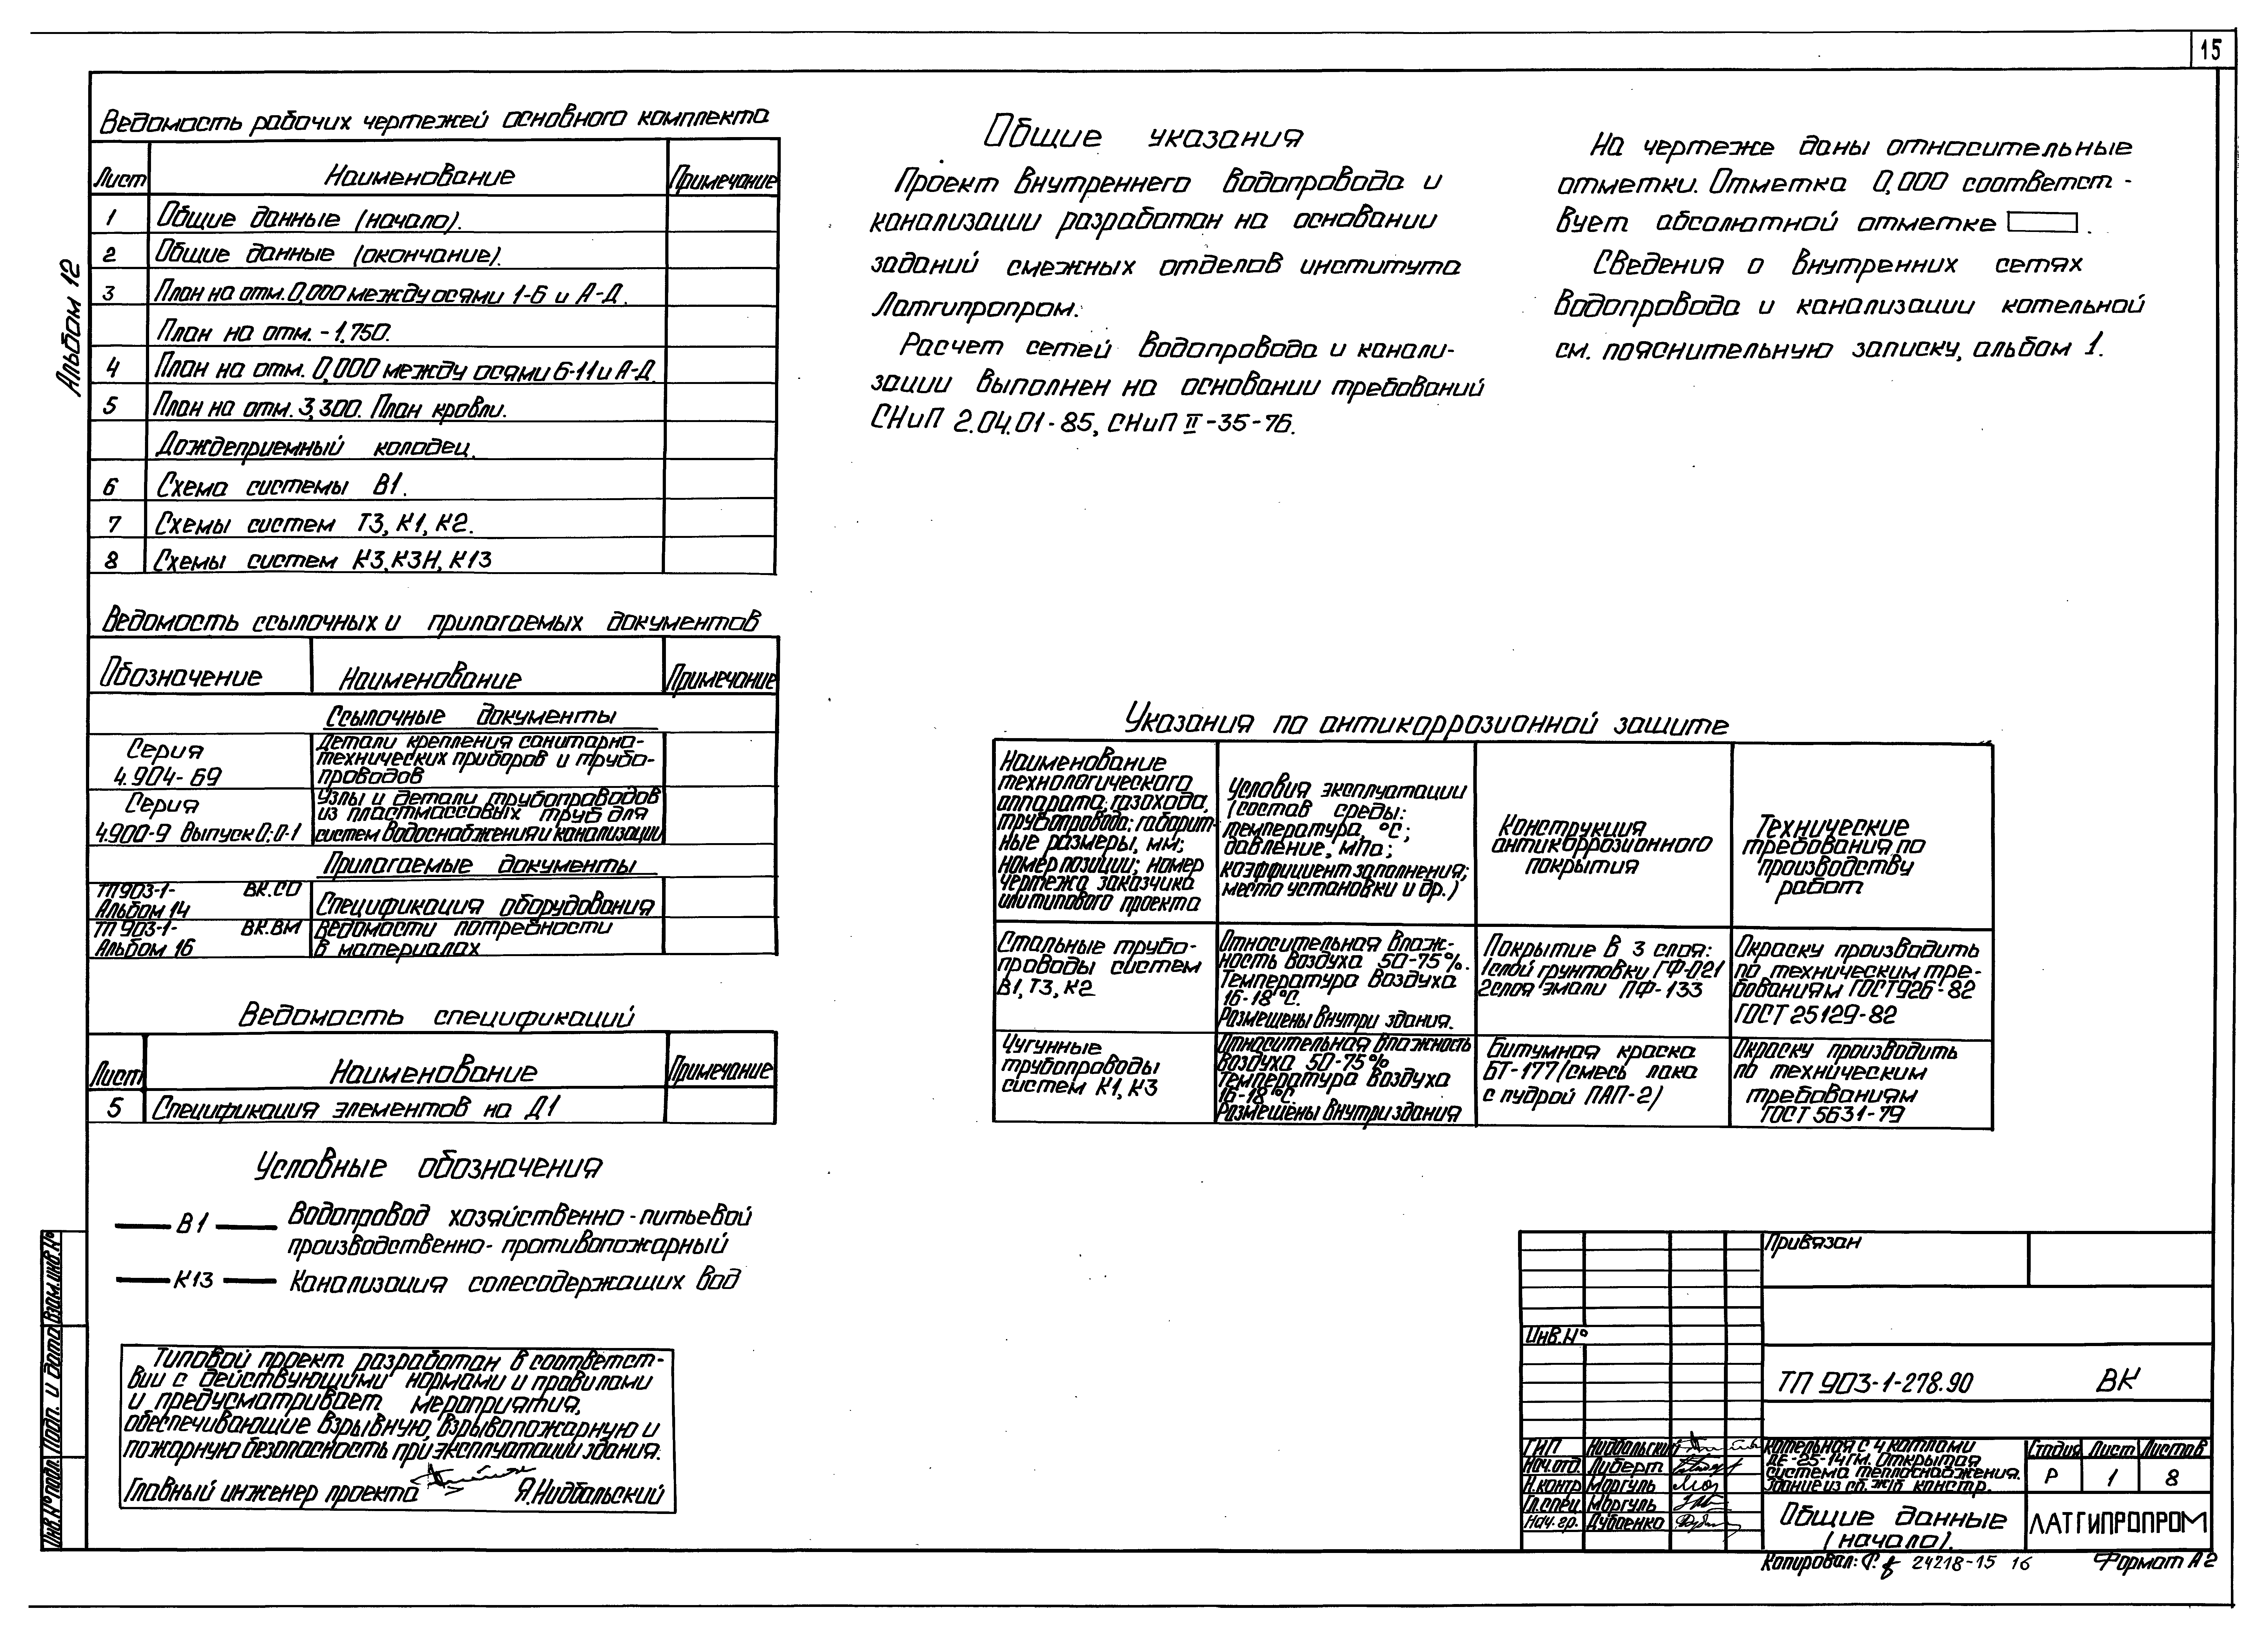 15
Альбом 12
Ведомость рабочих чертежей основного комплекта
Лист Наименование Примечание
1 Общие данные (начало).
2 Общие данные (окончание).
3 План на отм. 0,000 между осями 1-6 и А-Д.
План на отм. -1,750.
4 План на отм. 0,000 между осями 6-11 и А-Д.
5 План на отм. 3,300. План кровли.
Дождеприемный колодец.
6 Схема системы В1.
7 Схемы систем Т3, К1, К2.
8 Схемы систем К3, К3Н, К13
Ведомость ссылочных и прилагаемых документов
Обозначение Наименование Примечание
Ссылочные документы
Серия
4.904-69
Детали крепления санитарно-
технических приборов и трубо-
проводов
Серия
4.900-9 Выпуск 0; 0-1
Узлы и детали трубопроводов
из пластмассовых труб для
систем водоснабжения и канализации
Прилагаемые документы
ТП 903-1- ВК.СО
Альбом 14
Спецификация оборудования
ТП 903-1- ВК.ВМ
Альбом 16
Ведомости потребности
в материалах
Ведомость спецификаций
Лист Наименование Примечание
5 Спецификация элементов на Д1
Условные обозначения
В1 Водопровод хозяйственно-питьевой
производственно-противопожарный
К13 Канализация солесодержащих вод
Типовой проект разработан в соответст-
вии с действующими нормами и правилами
и предусматривает мероприятия,
обеспечивающие взрывную, взрывопожарную и
пожарную безопасность при эксплуатации здания.
Главный инженер проекта Я.Нидбальский
Общие указания
Проект внутреннего водопровода и
канализации разработан на основании
заданий смежных отделов института
Латгипропром.
Расчет сетей водопровода и канали-
зации выполнен на основании требований
СНиП 2.04.01-85, СНиП II-35-76.
На чертеже даны относительные
отметки. Отметка 0,000 соответст-
вует абсолютной отметке .
Сведения о внутренних сетях
водопровода и канализации котельной
см. пояснительную записку, альбом 1.
Указания по антикоррозионной защите
Наименование
технологического
аппарата, газохода,
трубопровода; габарит-
ные размеры, мм;
номер позиции; номер
чертежа заказчика
или типового проекта
Условия эксплуатации
(состав среды:
температура, °С;
давление, МПа;
коэффициент заполнения;
место установки и др.)
Конструкция
антикоррозионного
покрытия
Технические
требования по
производству
работ
Стальные трубо-
проводы систем
В1, Т3, К2
Относительная влаж-
ность воздуха 50-75%.
Температура воздуха
16-18°С.
Размещены внутри здания.
Покрытие в 3 слоя:
1слой грунтовки ГФ-021
2слоя эмали ПФ-133
Окраску производить
по техническим тре-
бованиям ГОСТ 926-82
ГОСТ 25129-82
Чугунные
трубопроводы
систем К1, К3
Относительная влажность
воздуха 50-75%
Температура воздуха
16-18°С.
Размещены внутри здания
Битумная краска
БТ-177 (смесь лака
с пудрой ПАП-2)
Окраску производить
по техническим
требованиям
ГОСТ 5631-79
Взам.инв.№
Подп. и дата
Инв.№ подл.
Привязан
Инв.№
ТП 903-1-278.90 ВК
ГИП Нидбальский
Нач.отд. Либерт
Н.контр Моргуль
Гл.спец Моргуль
Нач.гр. Дубоенко
Котельная с 4 котлами
ДЕ-25-14ГМ. Открытая
система теплоснабжения.
Здание из сб. ж/б констр.
Стадия Лист Листов
Р 1 8
Общие данные
(начало).
ЛАТГИПРОПРОМ
Копировал: 24218-15 16 Формат А2